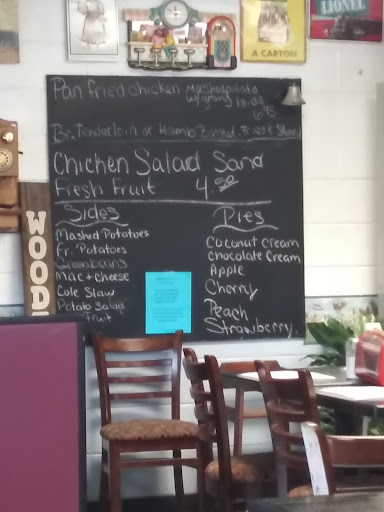 A CARTON
LIONEL
Pan fried chicken Mashed potato
w/gravy
Br. Tenderloin or
Chicken Salad Sand
Fresh Fruit 4.50
Sides
Mashed Potatoes
Fr. Potatoes
Greenbeans
Mac + cheese
Cole Slaw
Potato Salad
Fruit
Pies
Coconut Cream
Chocolate Cream
Apple
Cherry
Peach
Strawberry
WOOD